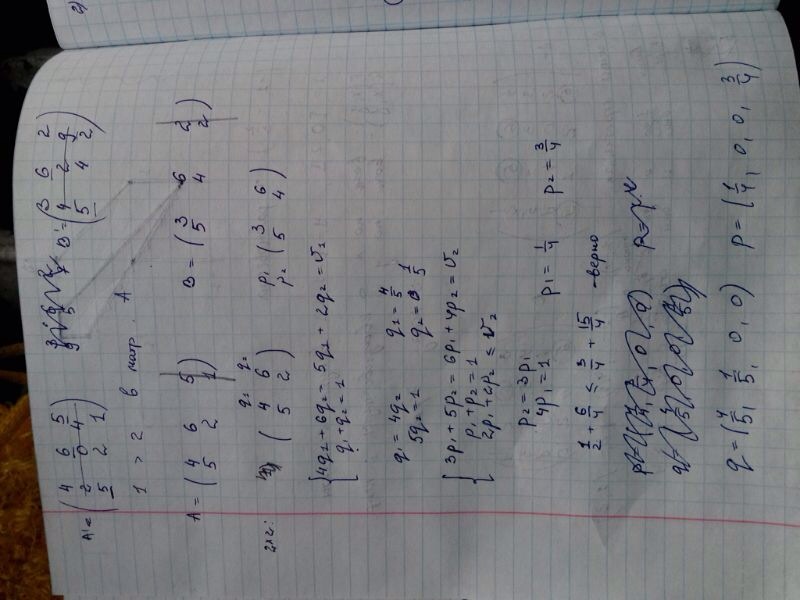 A' = ( 4 6 5 / 2 0 4 / 5 2 1 ) B' = ( 3 6 2 / 4 2 9 / 5 4 2 )
1 > 2 в матр. A
A = ( 4 6 5 / 5 2 1 ) B = ( 3 6 2 / 5 4 2 )
2x2: q₁ q₂ ( 4 6 / 5 2 ) p₁ p₂ ( 3 6 / 5 4 )
{ 4q₁ + 6q₂ = 5q₁ + 2q₂ = v₁
q₁ + q₂ = 1
q₁ = 4q₂ q₁ = 4/5
5q₂ = 1 q₂ = 1/5
{ 3p₁ + 5p₂ = 6p₁ + 4p₂ = v₂
p₁ + p₂ = 1
2p₁ + 2p₂ ≤ v₂
p₂ = 3p₁
4p₁ = 1 p₁ = 1/4 p₂ = 3/4
1/2 + 6/4 ≤ 3/4 + 15/4 - верно
q = (4/5, 1/5, 0, 0) p = (1/4, 0, 0, 3/4)